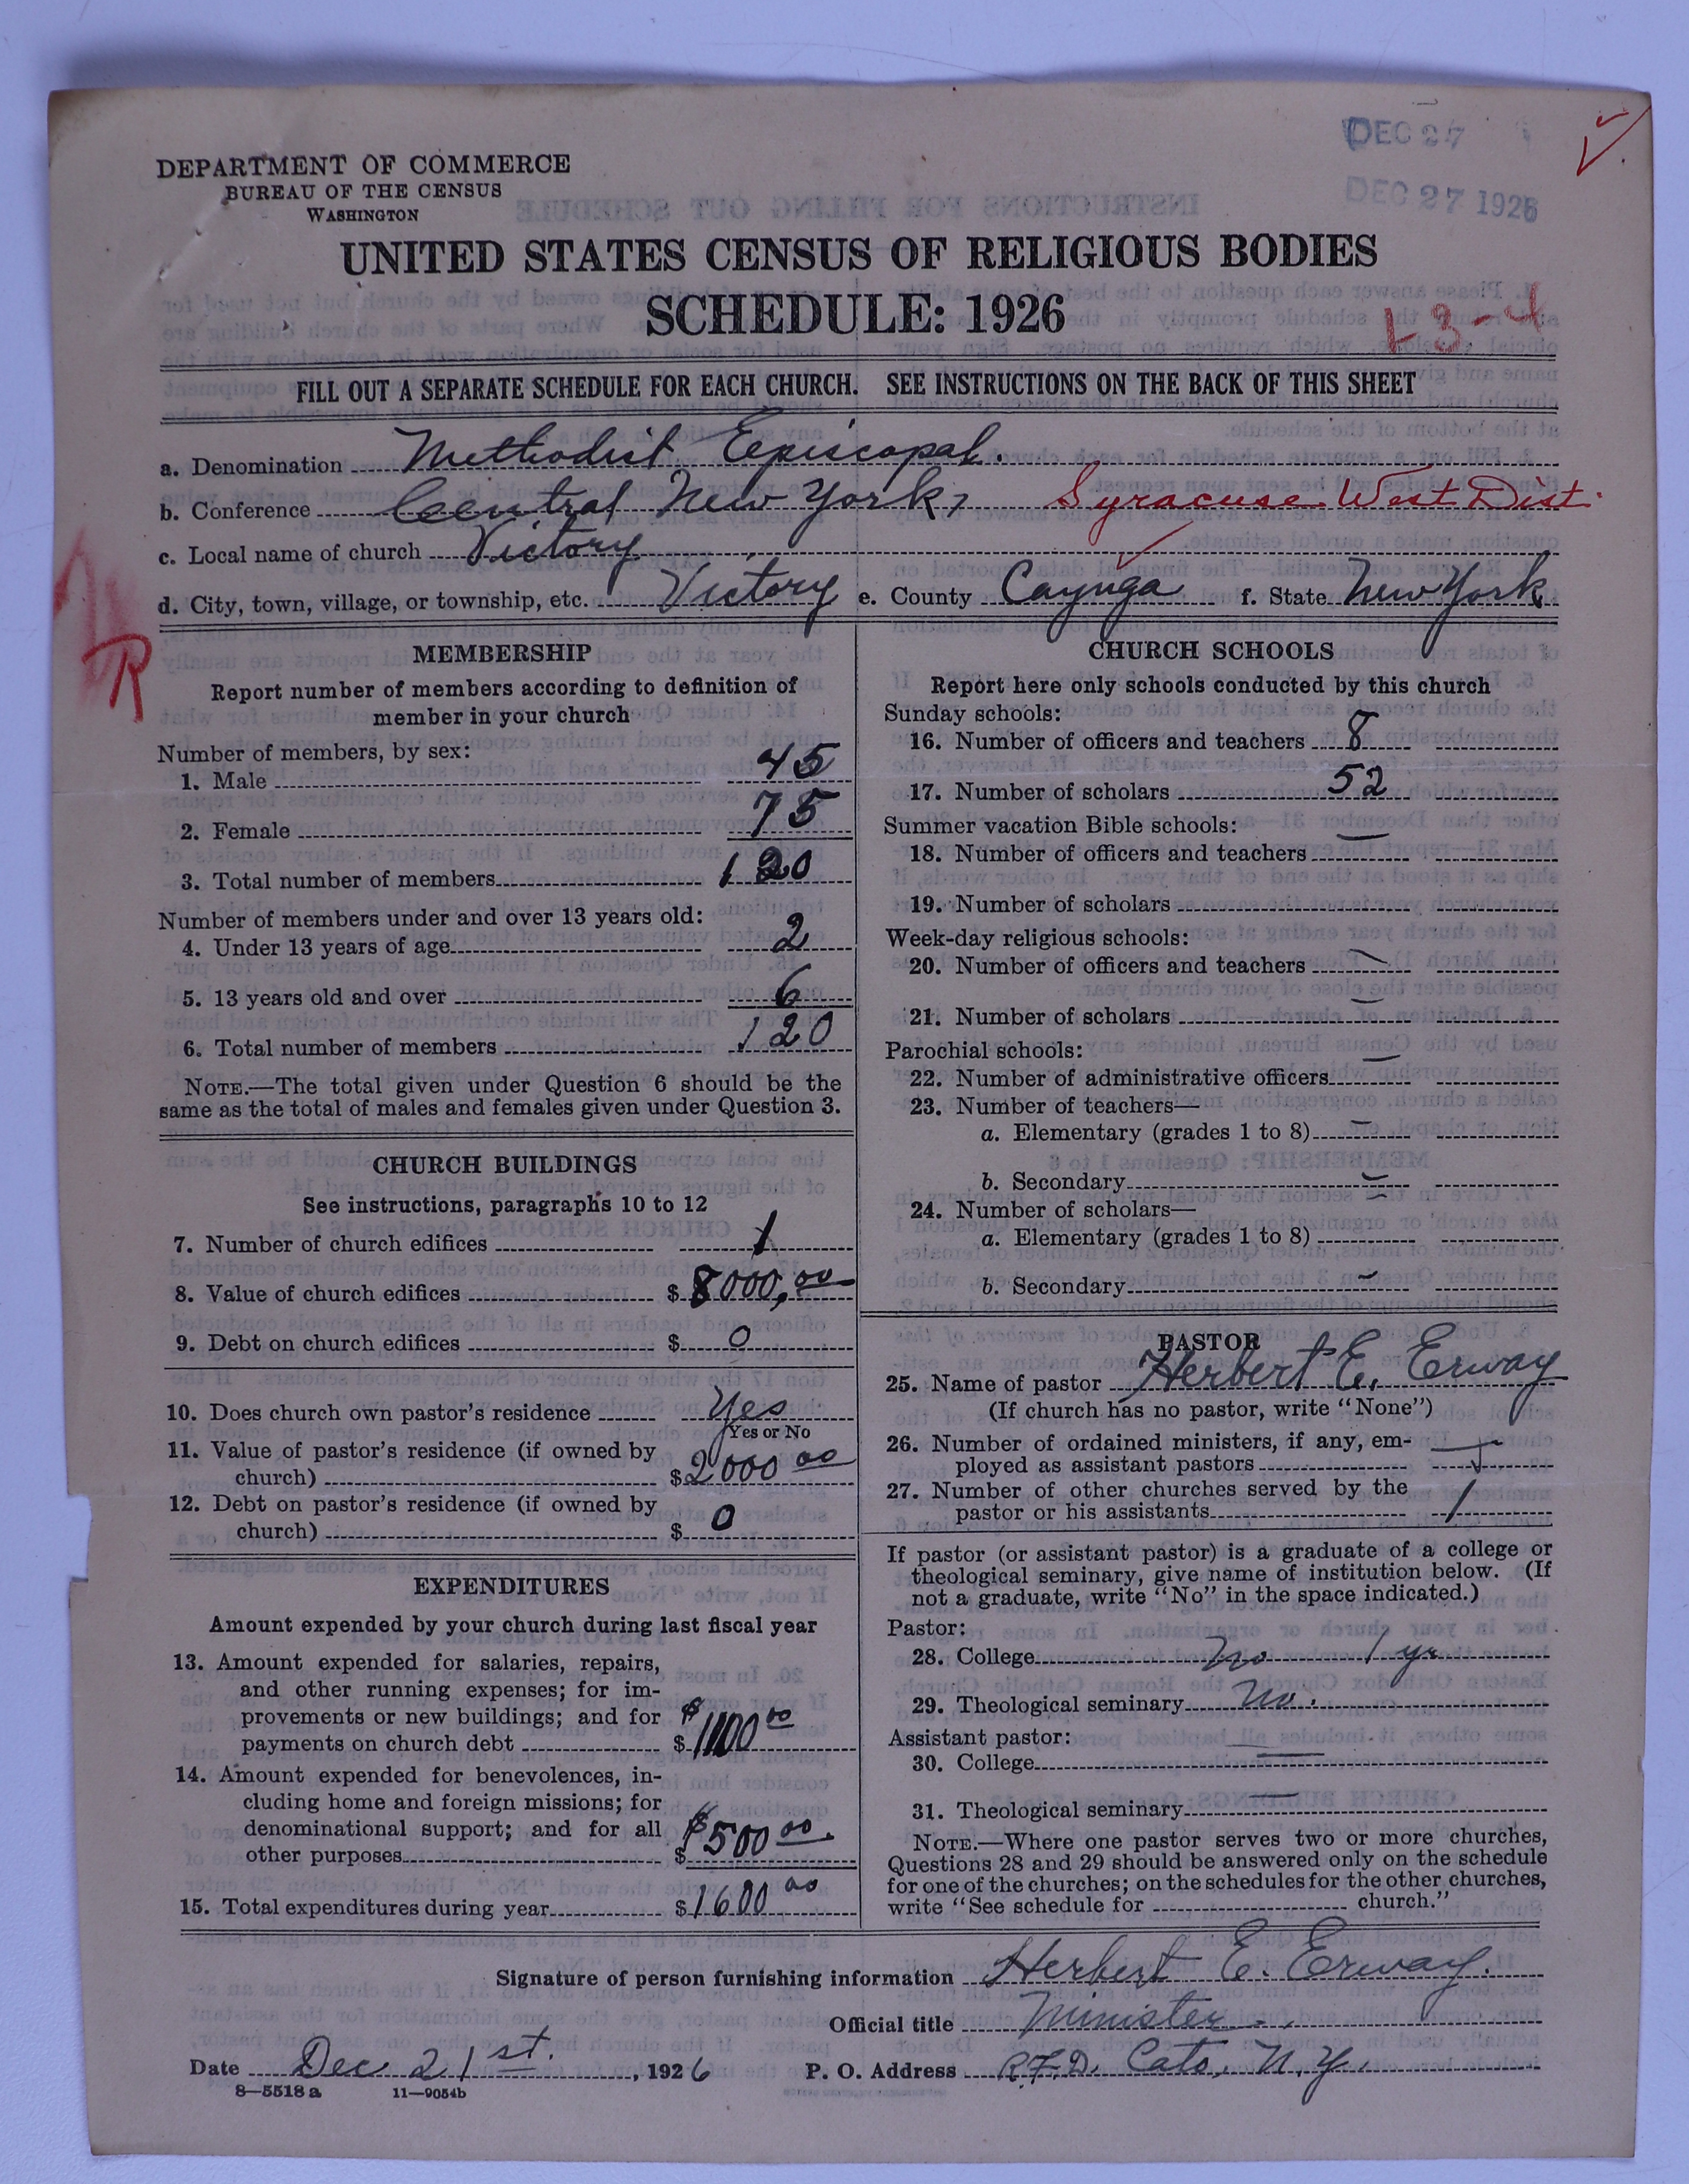 DEC 27
DEC 27 1926
DEPARTMENT OF COMMERCE
BUREAU OF THE CENSUS
WASHINGTON
UNITED STATES CENSUS OF RELIGIOUS BODIES
SCHEDULE: 1926
1-3-4
FILL OUT A SEPARATE SCHEDULE FOR EACH CHURCH. SEE INSTRUCTIONS ON THE BACK OF THIS SHEET
a. Denomination Methodist Episcopal.
b. Conference Central New York, Syracuse West Dist.
c. Local name of church Victory
d. City, town, village, or township, etc. Victory e. County Cayuga f. State New York
R
MEMBERSHIP
Report number of members according to definition of
member in your church
Number of members, by sex:
1. Male 45
2. Female 75
3. Total number of members 120
Number of members under and over 13 years old:
4. Under 13 years of age 2
5. 13 years old and over 6
6. Total number of members 120
NOTE.—The total given under Question 6 should be the
same as the total of males and females given under Question 3.
CHURCH BUILDINGS
See instructions, paragraphs 10 to 12
7. Number of church edifices 1
8. Value of church edifices $8000.00
9. Debt on church edifices $0
10. Does church own pastor's residence Yes
Yes or No
11. Value of pastor's residence (if owned by
church) $2000 00
12. Debt on pastor's residence (if owned by
church) $0
EXPENDITURES
Amount expended by your church during last fiscal year
13. Amount expended for salaries, repairs,
and other running expenses; for im-
provements or new buildings; and for
payments on church debt $1100 00
14. Amount expended for benevolences, in-
cluding home and foreign missions; for
denominational support; and for all
other purposes $500 00.
15. Total expenditures during year $1600 00
CHURCH SCHOOLS
Report here only schools conducted by this church
Sunday schools:
16. Number of officers and teachers 8
17. Number of scholars 52
Summer vacation Bible schools:
18. Number of officers and teachers —
19. Number of scholars
Week-day religious schools:
20. Number of officers and teachers —
21. Number of scholars —
Parochial schools:
22. Number of administrative officers —
23. Number of teachers—
a. Elementary (grades 1 to 8) —
b. Secondary —
24. Number of scholars—
a. Elementary (grades 1 to 8)
b. Secondary —
PASTOR
25. Name of pastor Herbert E. Erway
(If church has no pastor, write "None")
26. Number of ordained ministers, if any, em-
ployed as assistant pastors
27. Number of other churches served by the
pastor or his assistants 1
If pastor (or assistant pastor) is a graduate of a college or
theological seminary, give name of institution below. (If
not a graduate, write "No" in the space indicated.)
Pastor:
28. College No 1 yr
29. Theological seminary No.
Assistant pastor:
30. College —
31. Theological seminary —
NOTE.—Where one pastor serves two or more churches,
Questions 28 and 29 should be answered only on the schedule
for one of the churches; on the schedules for the other churches,
write "See schedule for church."
Signature of person furnishing information Herbert E. Erway.
Official title Minister.
Date Dec 21st. , 1926 P. O. Address R.F.D. Cato, N.Y.
8—5518 a 11—9054b